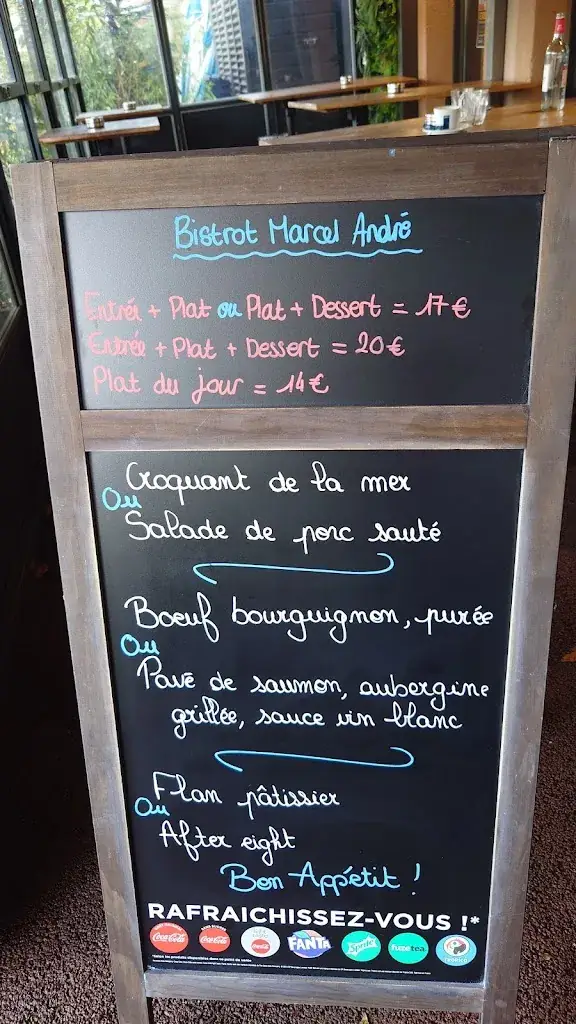 Bistrot Marcel André
Entrée + Plat ou Plat + Dessert = 17€
Entrée + Plat + Dessert = 20€
Plat du jour = 14€
Croquant de la mer
Ou
Salade de porc sauté
Boeuf bourguignon, purée
Ou
Pavé de saumon, aubergine
grillée, sauce vin blanc
Flan pâtissier
Ou
After eight
Bon Appétit !
RAFRAICHISSEZ-VOUS !*
Coca-Cola Coca-Cola Coca-Cola FANTA Sprite fuzetea